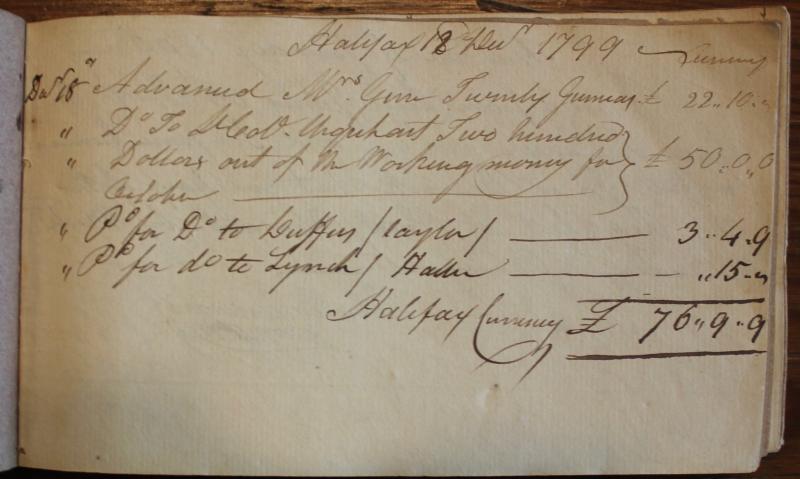 Halifax 18th Decr 1799 Currency
Decr 18 " Advanced Mrs. Gun Twenty Guineas £ 22..10..
" Do To Lt Col. Urquhart Two hundred
" Dollars out of the Working money for £ 50..0..0
October
" Pd for Do to Duffus / Taylor / 3..4..9
" Pd for do to Lynch / Hatter ..15..
Halifax Currency £ 76..9..9